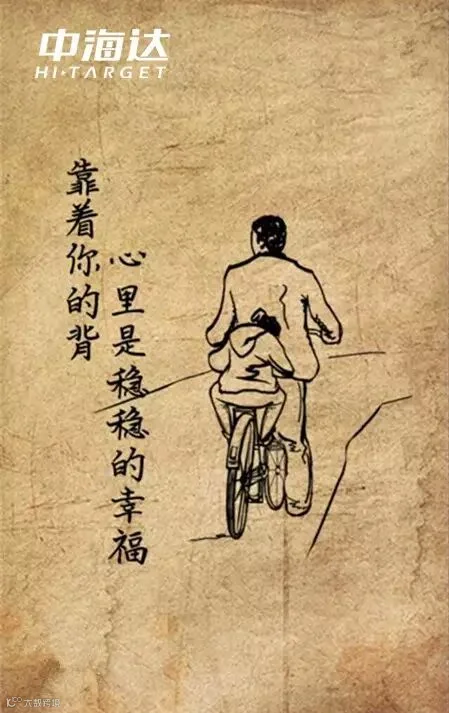 中海达
HI·TARGET
靠着你的背
心里是稳稳的幸福
大数跨境